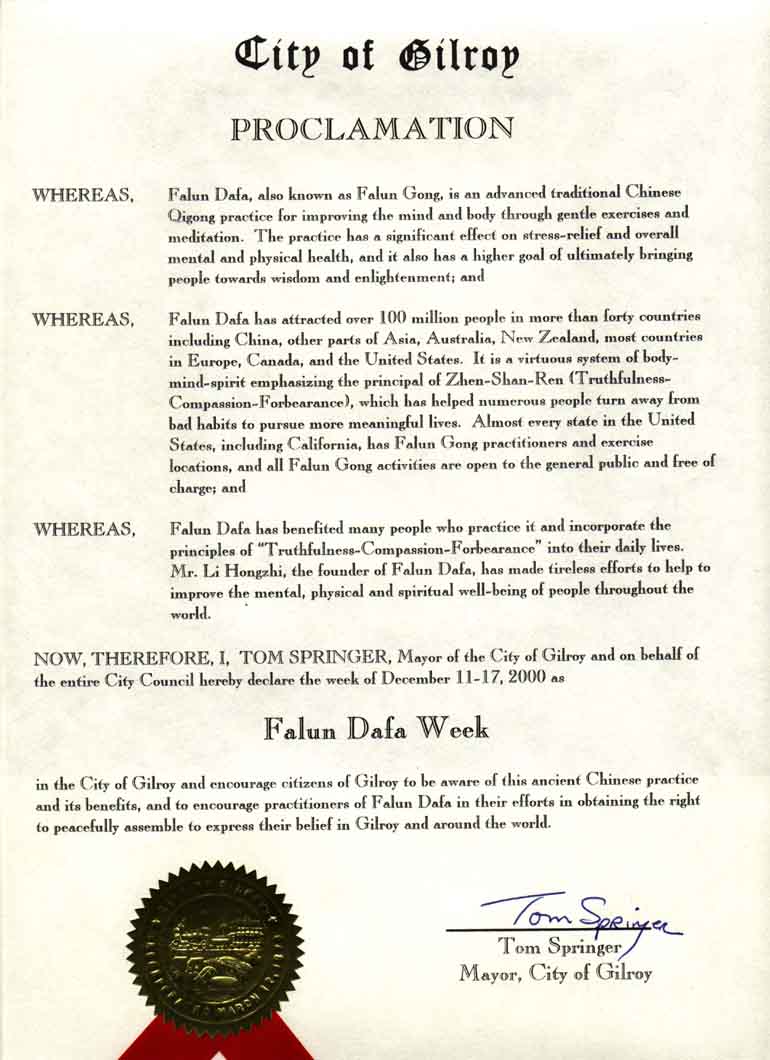 City of Gilroy
PROCLAMATION
WHEREAS, Falun Dafa, also known as Falun Gong, is an advanced traditional Chinese
Qigong practice for improving the mind and body through gentle exercises and
meditation. The practice has a significant effect on stress-relief and overall
mental and physical health, and it also has a higher goal of ultimately bringing
people towards wisdom and enlightenment; and
WHEREAS, Falun Dafa has attracted over 100 million people in more than forty countries
including China, other parts of Asia, Australia, New Zealand, most countries
in Europe, Canada, and the United States. It is a virtuous system of body-
mind-spirit emphasizing the principal of Zhen-Shan-Ren (Truthfulness-
Compassion-Forbearance), which has helped numerous people turn away from
bad habits to pursue more meaningful lives. Almost every state in the United
States, including California, has Falun Gong practitioners and exercise
locations, and all Falun Gong activities are open to the general public and free of
charge; and
WHEREAS, Falun Dafa has benefited many people who practice it and incorporate the
principles of "Truthfulness-Compassion-Forbearance" into their daily lives.
Mr. Li Hongzhi, the founder of Falun Dafa, has made tireless efforts to help to
improve the mental, physical and spiritual well-being of people throughout the
world.
NOW, THEREFORE, I, TOM SPRINGER, Mayor of the City of Gilroy and on behalf of
the entire City Council hereby declare the week of December 11-17, 2000 as
Falun Dafa Week
in the City of Gilroy and encourage citizens of Gilroy to be aware of this ancient Chinese practice
and its benefits, and to encourage practitioners of Falun Dafa in their efforts in obtaining the right
to peacefully assemble to express their belief in Gilroy and around the world.
Tom Springer
Tom Springer
Mayor, City of Gilroy
MARCH 12